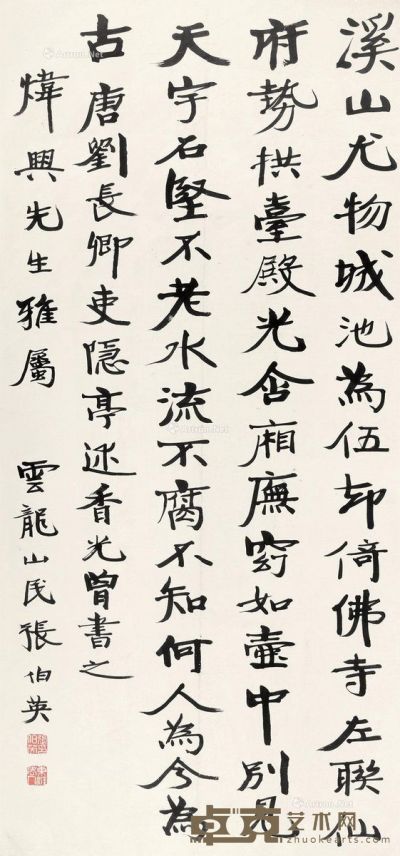 溪山尤物城池為伍却倚佛寺左聯仙
府勢拱臺殿光含廂廡窈如壺中別見
天宇石堅不老水流不腐不知何人為今為
古唐劉長卿吏隱亭述香光曾書之
煒興先生雅屬
雲龍山民張伯英
卓克艺术网
zhuokearts.com